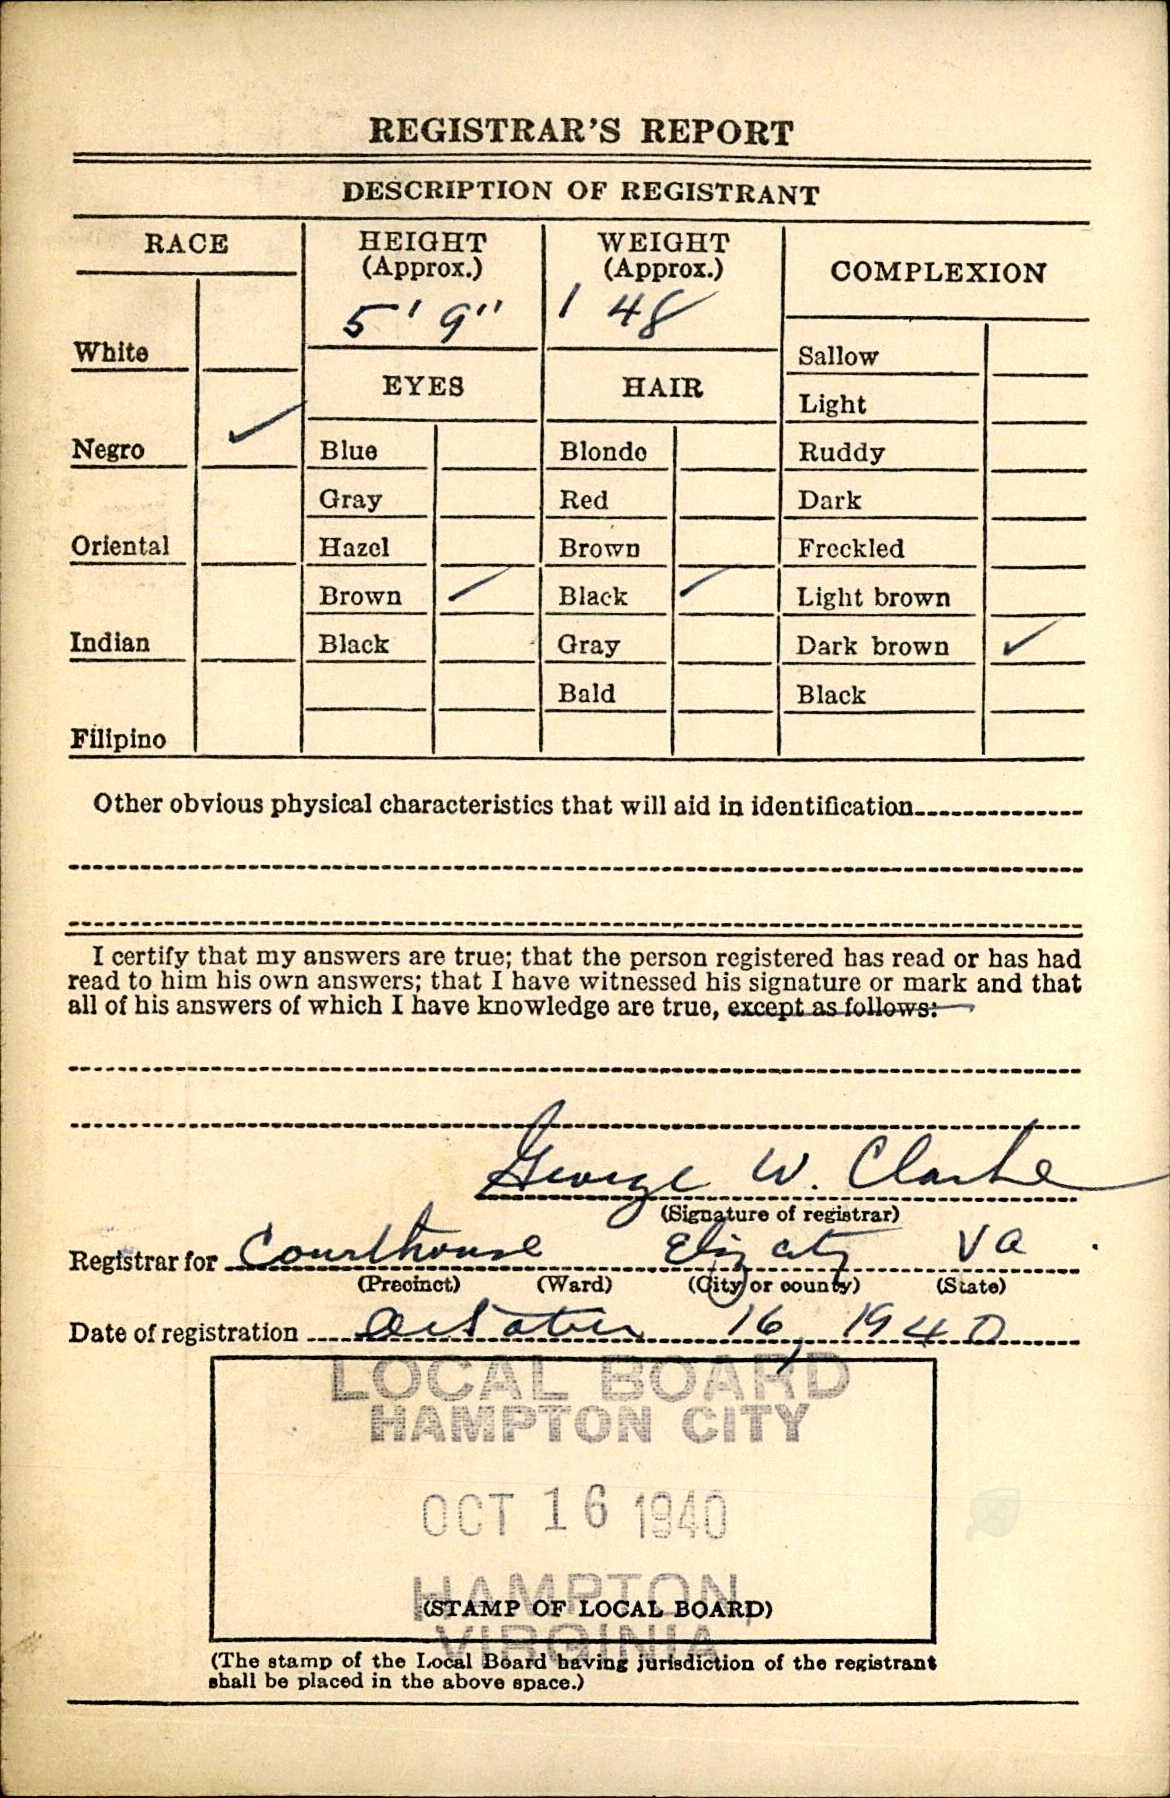 REGISTRAR'S REPORT
DESCRIPTION OF REGISTRANT
RACE
White
Negro ✓
Oriental
Indian
Filipino
HEIGHT
(Approx.)
5' 9"
WEIGHT
(Approx.)
148
EYES
Blue
Gray
Hazel
Brown ✓
Black
HAIR
Blonde
Red
Brown
Black ✓
Gray
Bald
COMPLEXION
Sallow
Light
Ruddy
Dark
Freckled
Light brown
Dark brown ✓
Black
Other obvious physical characteristics that will aid in identification
I certify that my answers are true; that the person registered has read or has had
read to him his own answers; that I have witnessed his signature or mark and that
all of his answers of which I have knowledge are true, except as follows:
George W. Clarke
(Signature of registrar)
Registrar for Courthouse Eliz city Va.
(Precinct) (Ward) (City or county) (State)
Date of registration October 16, 1940
LOCAL BOARD
HAMPTON CITY
OCT 16 1940
HAMPTON,
(STAMP OF LOCAL BOARD)
VIRGINIA
(The stamp of the Local Board having jurisdiction of the registrant
shall be placed in the above space.)